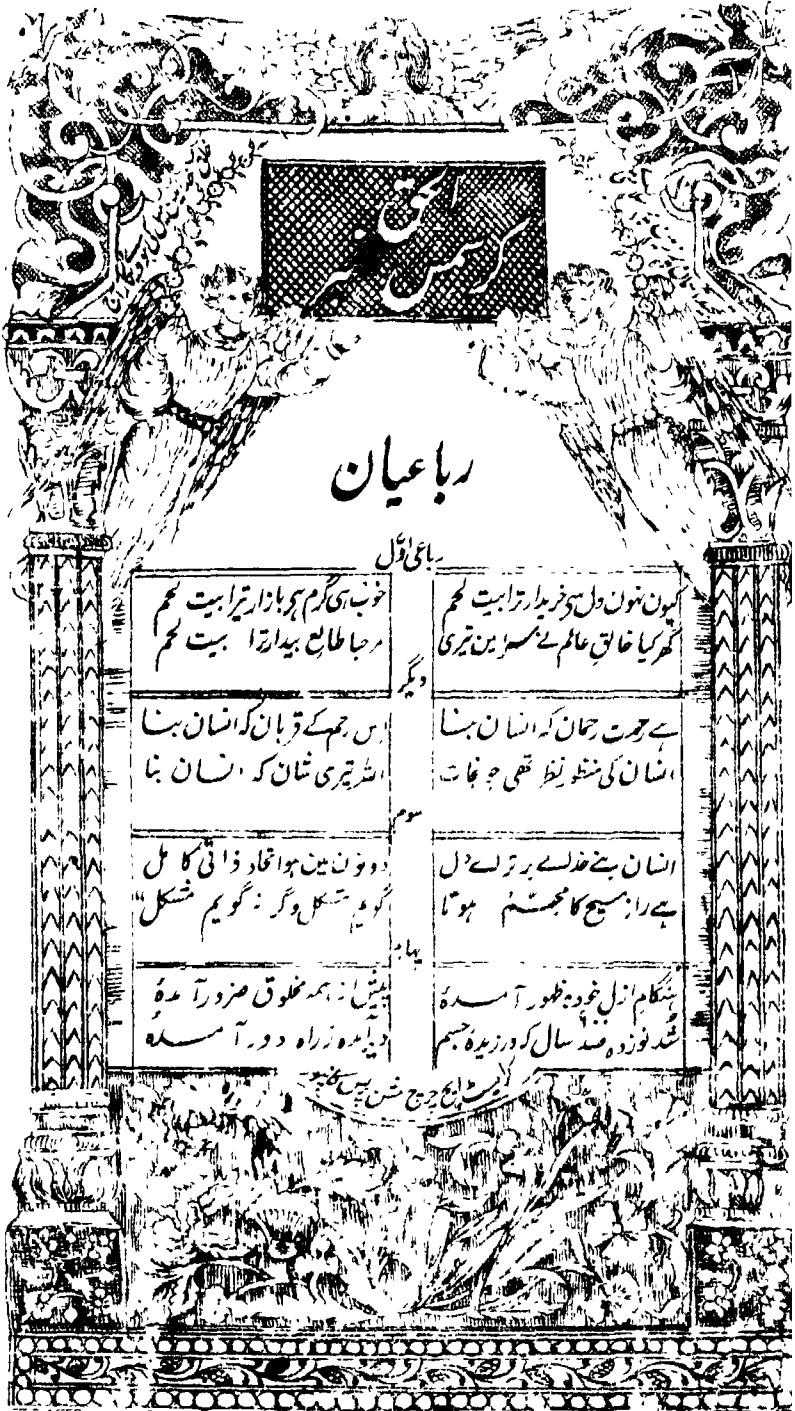 الحق
کرسمس نمبر
رباعیان
رباعی اوّل
کیون نہون دل سی خریدار ترا بیت لحم
خوب ہی گرم ہی بازار تیرا بیت لحم
گھر کیا خالقِ عالم نے مین تیری
مرحبا طالع بیدار ترا بیت لحم
دیگر
ہے رحمت رحمان کہ انسان بنا
اس رحم کے قربان کہ انسان بنا
انسان کی منظور نظر تھی جو نجات
اللہ تیری شان کہ انسان بنا
سوم
انسان بنے خدائے برتر اے دل
دونون مین ہوا اتحاد ذاتی کامل
ہے راز مسیح کا مجسّم ہونا
گویم مشکل وگر نہ گویم مشکل"
ہنگام ازل خود بہ ظہور آمدۂ
پیش از ہمہ مخلوق ضرور آمدۂ
شد نوزدہ صد سال کہ ورزیدہ جسم
دیر آمدہ زراہ دور آمدۂ
کرائسٹ چرچ مشن پریس کانپور